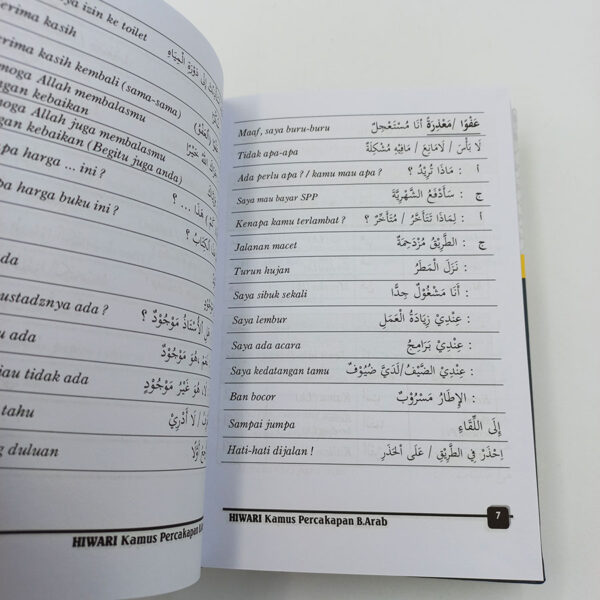 a izin ke toilet
erima kasih
erima kasih kembali (sama-sama)
moga Allah membalasmu
ngan kebaikan
moga Allah juga membalasmu
n kebaikan (Begitu juga anda)
pa harga ... ini ?
pa harga buku ini ?
ada
ustadznya ada ?
u ada
iau tidak ada
tahu
g duluan
دَوْرَةِ الْمِيَاهِ
هَذَا ... ؟
الْأُسْتَاذُ مَوْجُوْدٌ ؟
هُوَ مَوْجُوْدٌ
هُوَ غَيْرُ مَوْجُوْدٍ
لَا أَدْرِيْ
HIWARI Kamus Percakapan
Maaf, saya buru-buru عَفْوًا /مَعْذِرَةً أَنَا مُسْتَعْجِلٌ
Tidak apa-apa لَا بَأْسَ / لَامَانِعَ / مَافِيْهِ مُشْكِلَةٌ
Ada perlu apa ? / kamu mau apa ? أ : مَاذَا تُرِيْدُ ؟
Saya mau bayar SPP ج : سَأَدْفَعُ الشَّهْرِيَّةَ
Kenapa kamu terlambat ? أ : لِمَاذَا تَتَأَخَّرُ / مُتَأَخِّرٌ ؟
Jalanan macet ج : الطَّرِيْقُ مُزْدَحِمَةٌ
Turun hujan : نَزَلَ الْمَطَرُ
Saya sibuk sekali : أَنَا مَشْغُوْلٌ جِدًّا
Saya lembur : عِنْدِيْ زِيَادَةُ الْعَمَلِ
Saya ada acara : عِنْدِيْ بَرَامِجُ
Saya kedatangan tamu : عِنْدِيْ الضَّيْفُ/لَدَيَّ ضُيُوْفٌ
Ban bocor : الإِطَارُ مَسْرُوْبٌ
Sampai jumpa إِلَى اللِّقَاءِ
Hati-hati dijalan ! اِحْذَرْ فِي الطَّرِيْقِ / عَلَى الْحَذَرِ
HIWARI Kamus Percakapan B.Arab 7